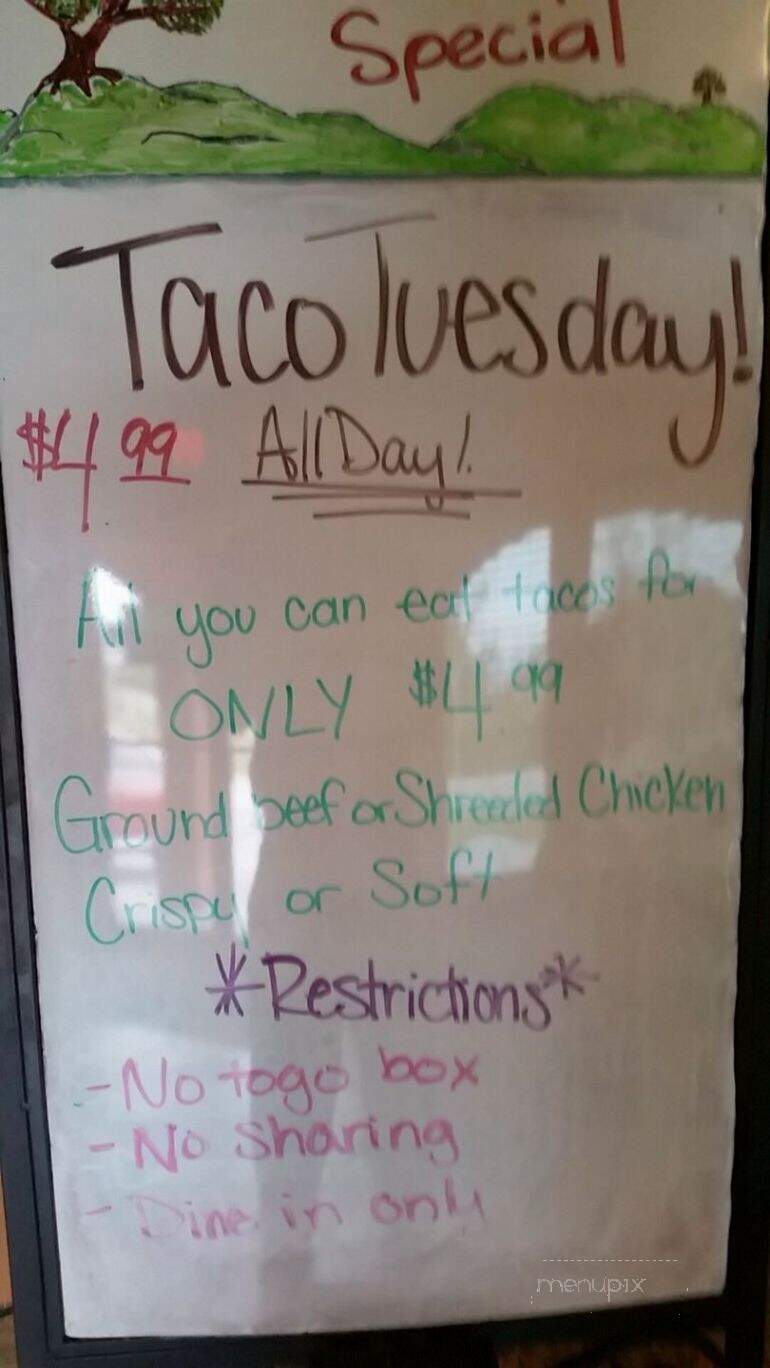 Special
Taco Tuesday!
$4 99 All Day!
All you can eat tacos for
ONLY $4 99
Ground beef or Shreeded Chicken
Crispy or Soft
*Restrictions*
- No togo box
- No Sharing
- Dine in only
menupix